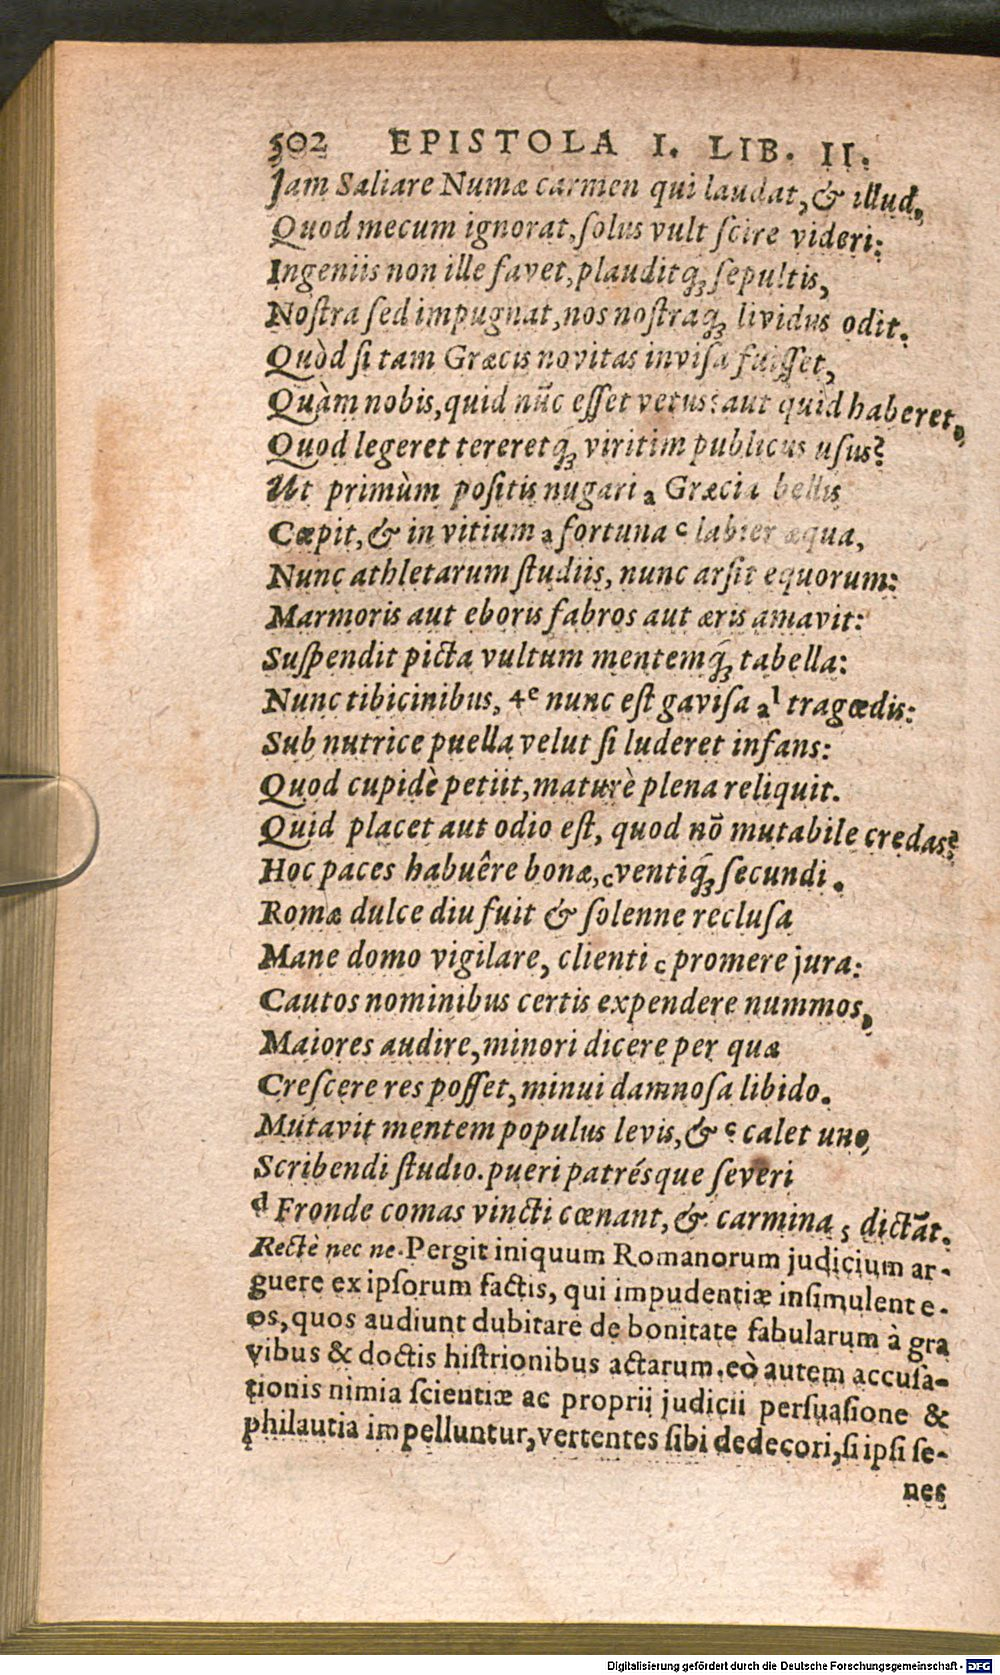 502 EPISTOLA I. LIB. II.
Jam Saliare Numæ carmen qui laudat, & illud,
Quod mecum ignorat, ſolus vult ſcire videri:
Ingeniis non ille favet, plauditq́ꝫ ſepultis,
Noſtra ſed impugnat, nos noſtraq́ꝫ lividus odit.
Quòd ſi tam Græcis novitas inviſa fuiſſet,
Quàm nobis, quid nūc eſſet vetus: aut quid haberet,
Quod legeret tereretq́ꝫ viritim publicus uſus?
Ut primùm poſitis nugari a Græcia bellis
Cœpit, & in vitium a fortuna c labier æqua,
Nunc athletarum ſtudiis, nunc arſit equorum:
Marmoris aut eboris fabros aut æris amavit:
Suſpendit picta vultum mentemq́ꝫ tabella:
Nunc tibicinibus, 4e nunc eſt gaviſa a l tragœdis:
Sub nutrice puella velut ſi luderet infans:
Quod cupidè petiit, maturè plena reliquit.
Quid placet aut odio eſt, quod nō mutabile credas?
Hoc paces habuêre bonæ, c ventiq́ꝫ ſecundi.
Romæ dulce diu fuit & ſolenne recluſa
Mane domo vigilare, clienti c promere jura:
Cautos nominibus certis expendere nummos,
Maiores audire, minori dicere per quæ
Creſcere res poſſet, minui damnoſa libido.
Mutavit mentem populus levis, & c calet uno,
Scribendi ſtudio. pueri patrésque ſeveri
d Fronde comas vincti cœnant, & carmina 5 dictāt.
Rectè nec ne. Pergit iniquum Romanorum judicium ar-
guere ex ipſorum factis, qui impudentiæ inſimulent e-
os, quos audiunt dubitare de bonitate fabularum à gra
vibus & doctis hiſtrionibus actarum. eò autem accuſa-
tionis nimia ſcientiæ ac proprii judicii perſuaſione &
philautia impelluntur, vertentes ſibi dedecori, ſi ipſi ſe-
nes
Digitalisierung gefördert durch die Deutsche Forschungsgemeinschaft - DFG